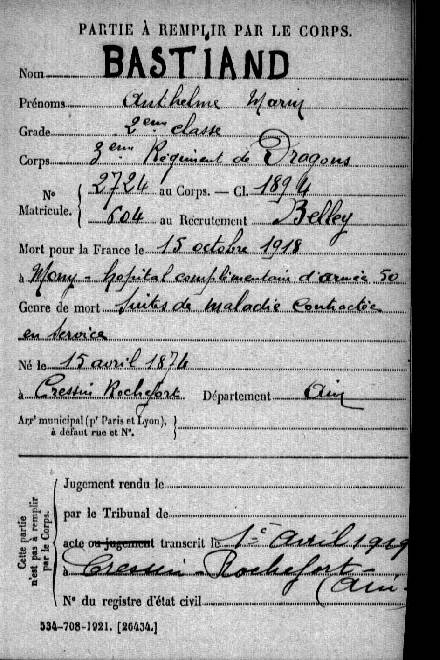 PARTIE À REMPLIR PAR LE CORPS.
Nom BASTIAND
Prénoms Anthelme Marin
Grade 2eme classe
Corps 3eme Régiment de Dragons
N° Matricule. { 2724 au Corps. — Cl. 1894
604 au Recrutement Belley
Mort pour la France le 15 octobre 1918
à Mony - hopital complimentaire d'armée 50
Genre de mort Suites de maladie contractée
en service
Né le 15 avril 1874
à Cressin Rochefort Département Ain
Arrt municipal (pr Paris et Lyon), à défaut rue et N°. }
Cette partie n'est pas à remplir par le Corps.
Jugement rendu le
par le Tribunal de
acte ou jugement transcrit le 1er Avril 1919
à Cressin Rochefort -
(Ain -
N° du registre d'état civil
534-708-1921. [26434.]